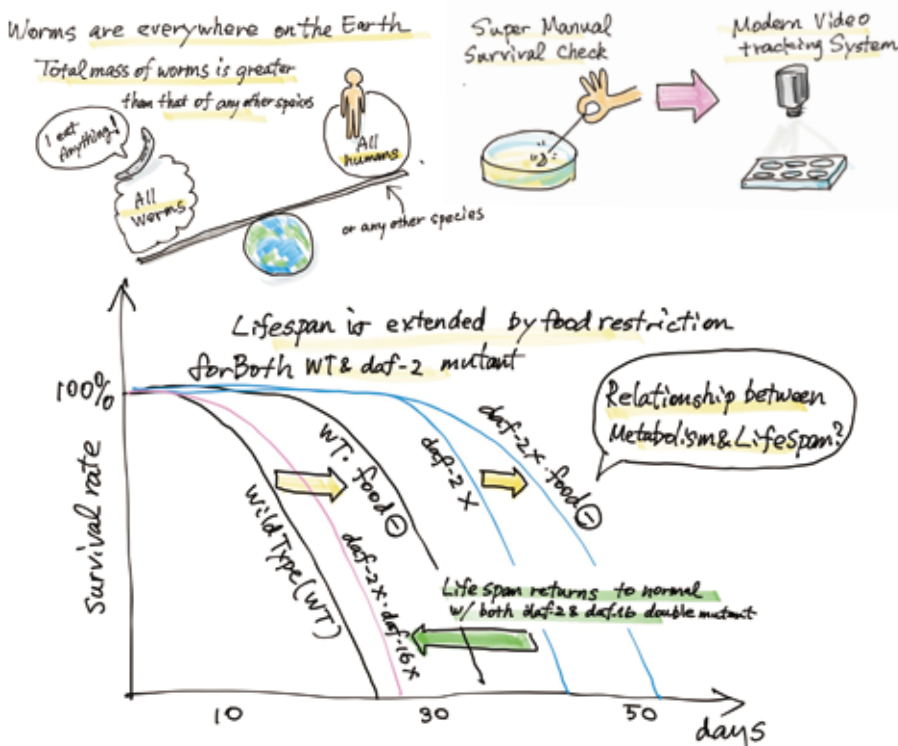 Worms are everywhere on the Earth
Total mass of worms is greater
than that of any other spicis
I eat
Anything!
All
Worms
All
humans
or any other species
Super Manual
Survival Check
Modern Video
tracking System
Lifespan is extended by food restriction
for Both WT & daf-2 mutant
100%
Survival rate
Wild Type (WT)
daf-2X・daf-16X
WT・food⊖
daf-2X
daf-2X・food⊖
Relationship between
Metabolism & Lifespan?
Life span returns to normal
w/ both daf-2 & daf-16 double mutant
10
30
50
days